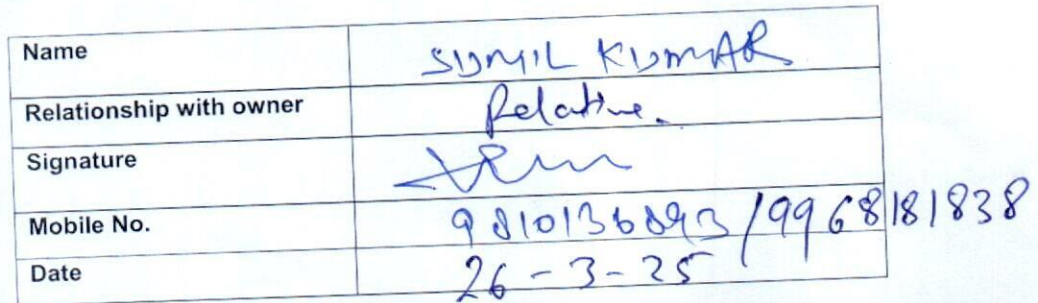 Name SUNIL KUMAR
Relationship with owner Relative.
Signature
Mobile No. 9810136893 / 9968181838
Date 26-3-25